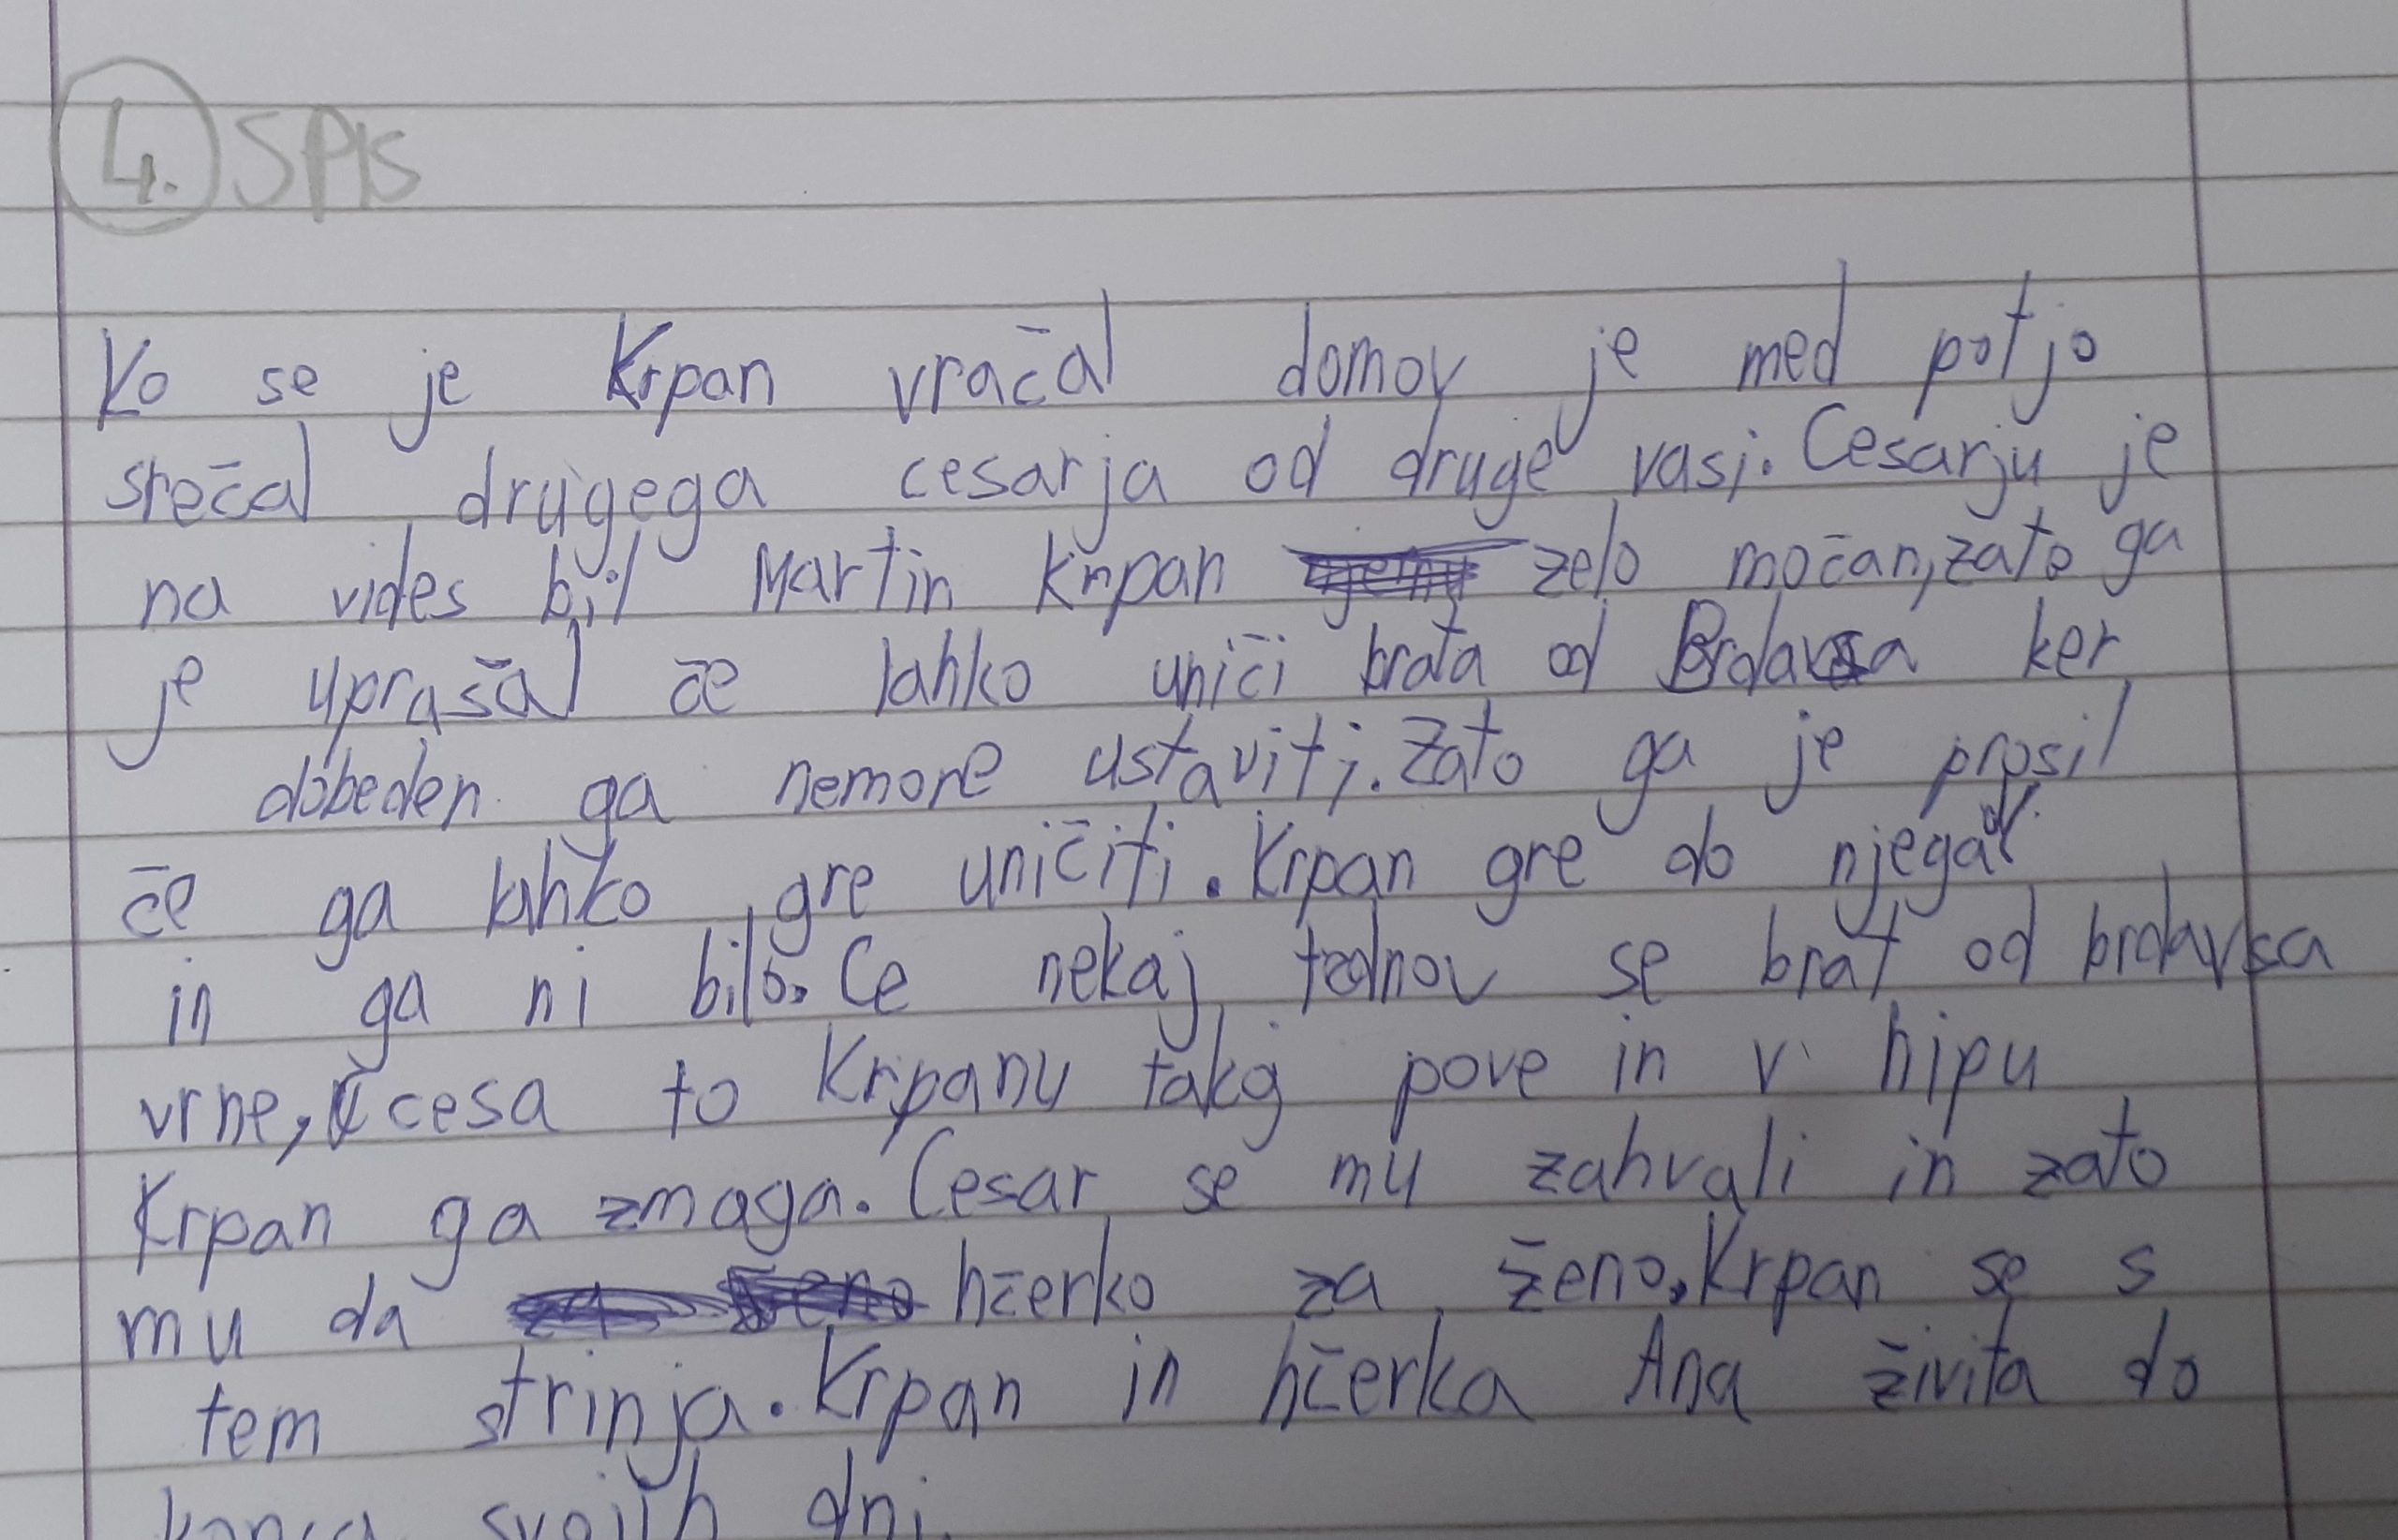 4. SPIS
Ko se je Krpan vračal domov je med potjo
srečal drugega cesarja od druge vasi. Cesarju je
na vides bil Martin Krpan zelo močan, zato ga
je uprašal če lahko uniči brata od Brdavsa ker
dobeden ga nemore ustaviti. Zato ga je prosil
če ga lahko gre uničiti. Krpan gre do njega
in ga ni bilo. Če nekaj tednov se brat od brdavsa
vrne, cesa to Krpanu takg pove in v hipu
Krpan ga zmaga. Cesar se mu zahvali in zato
mu da hčerko za ženo. Krpan se s
tem strinja. Krpan in hčerka Ana živita do
konca svojih dni.